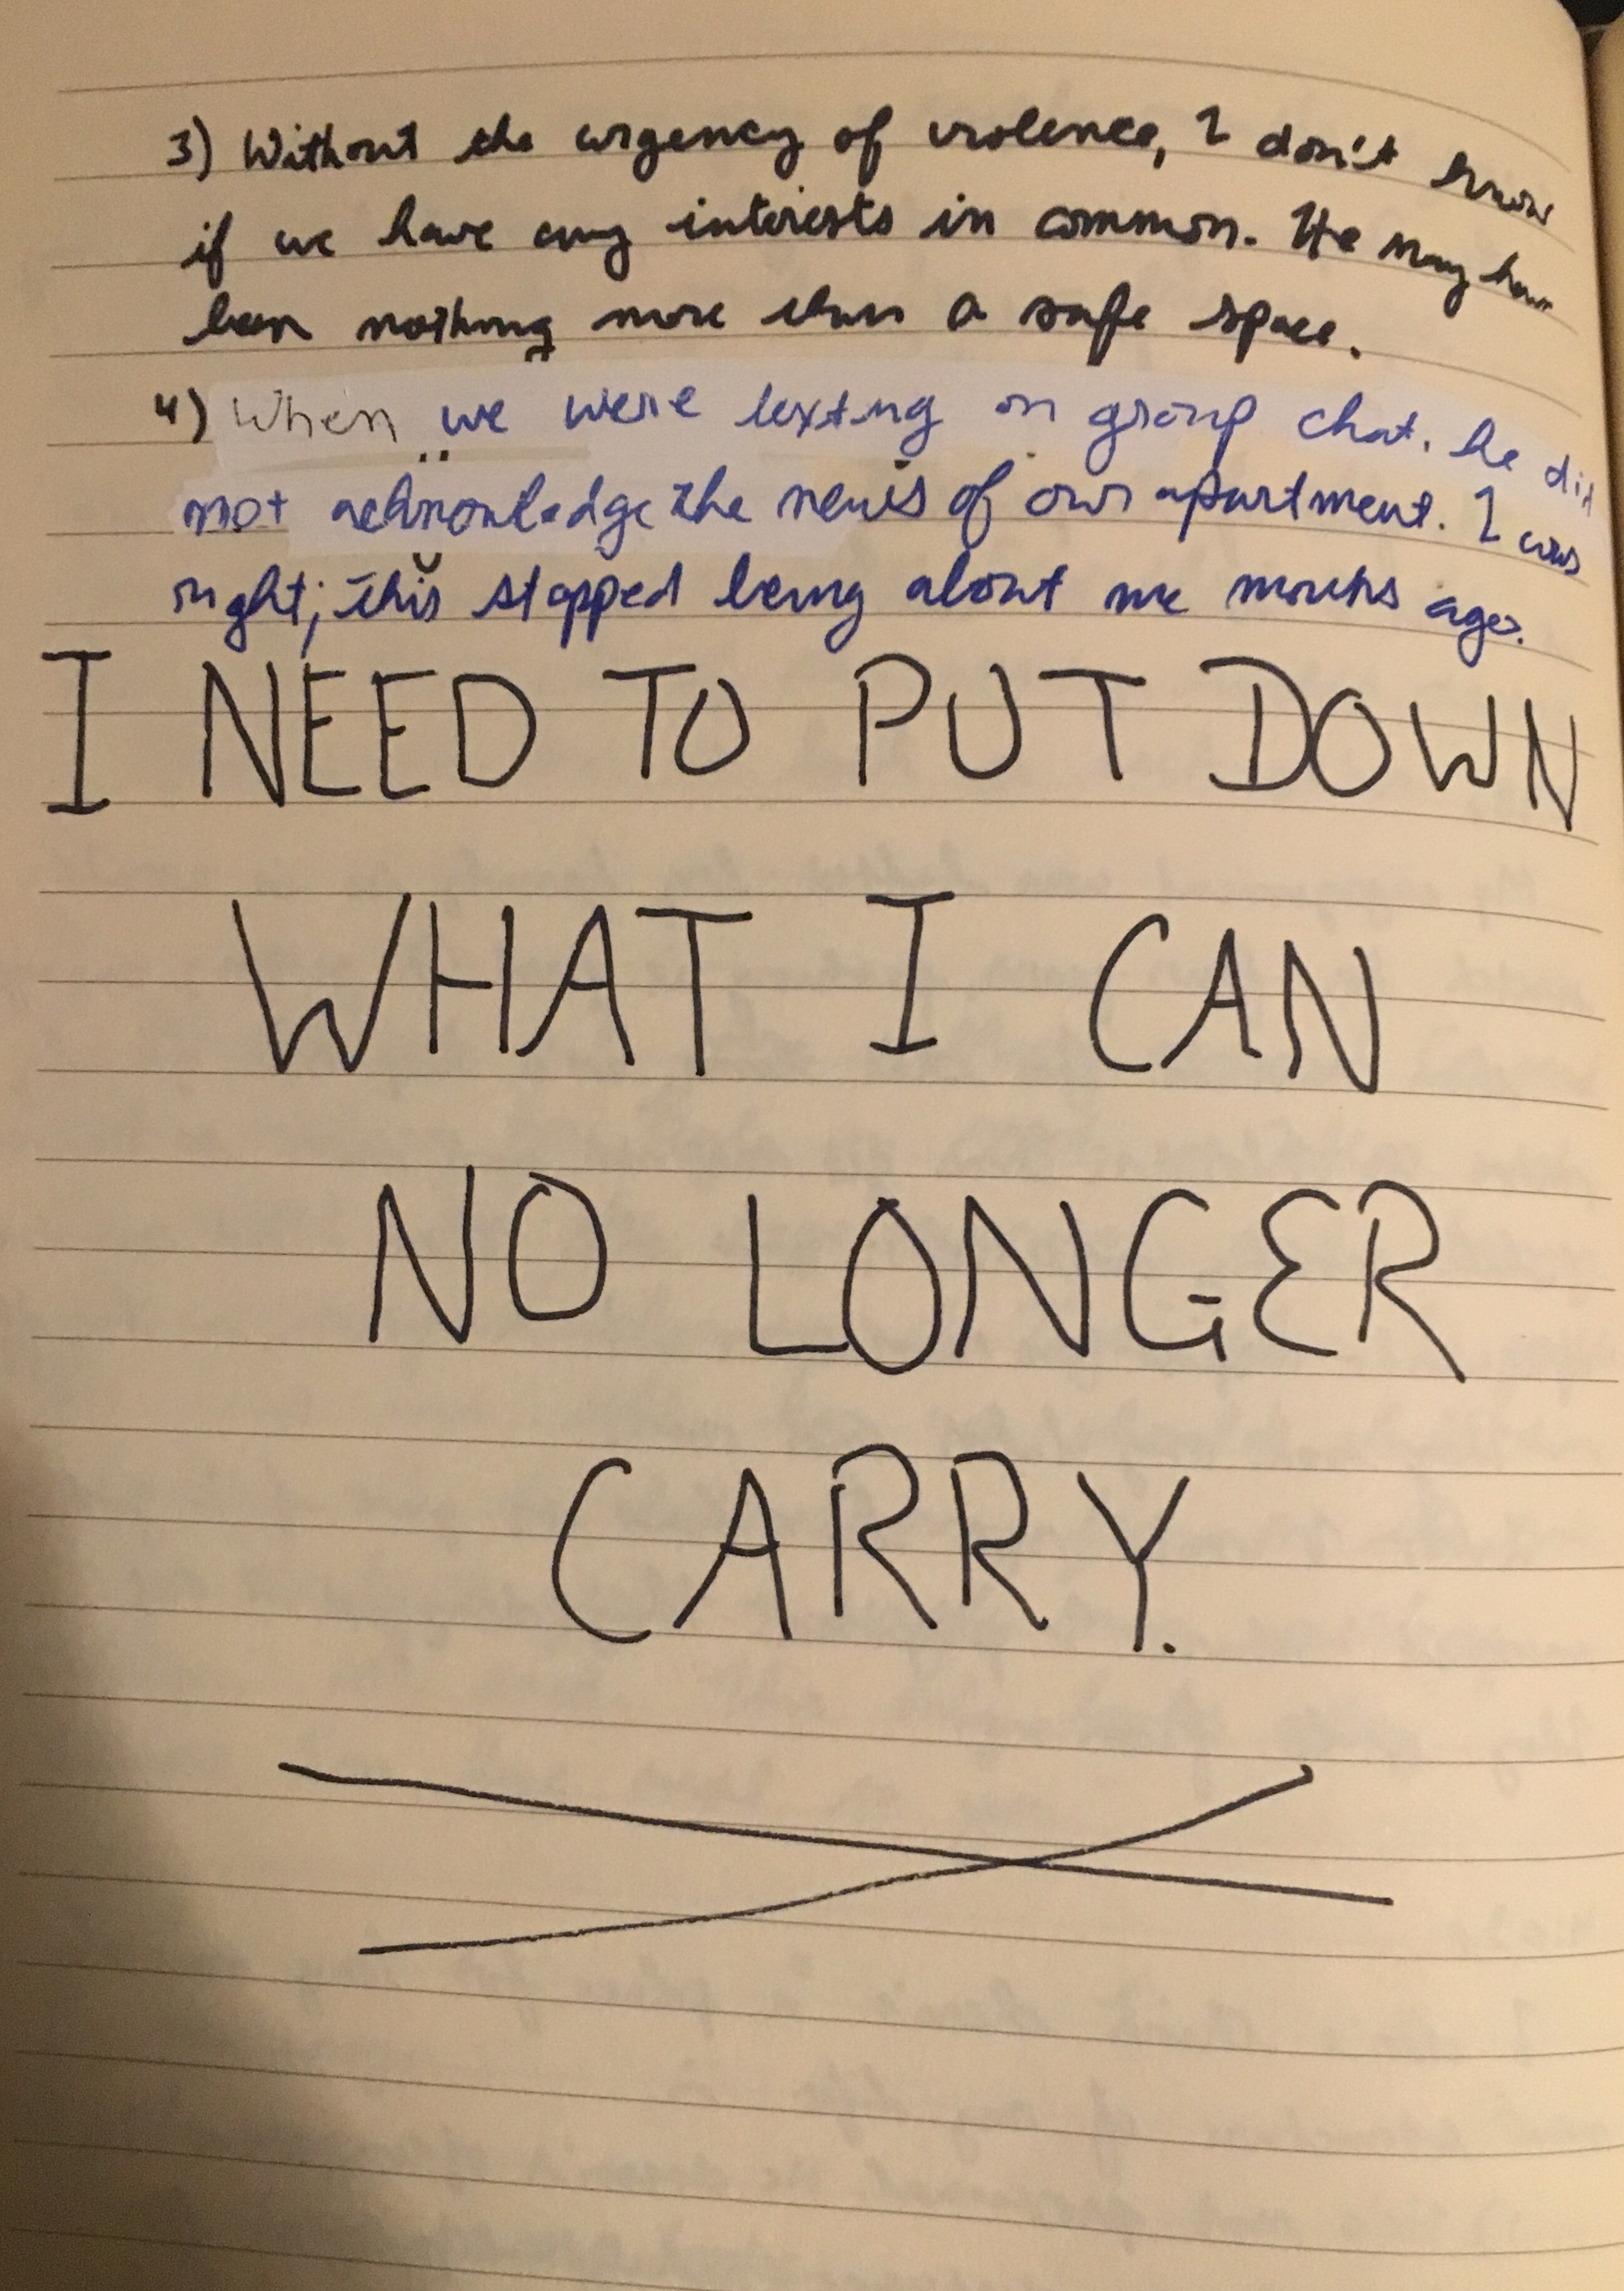 3) Without the urgency of violence, I don't know
if we have any interests in common. He may have
been nothing more than a safe space.
4) When we were texting on group chat, he did
not acknowledge the news of our apartment. I was
right; this stopped being about me months ago.
I NEED TO PUT DOWN
WHAT I CAN
NO LONGER
CARRY.